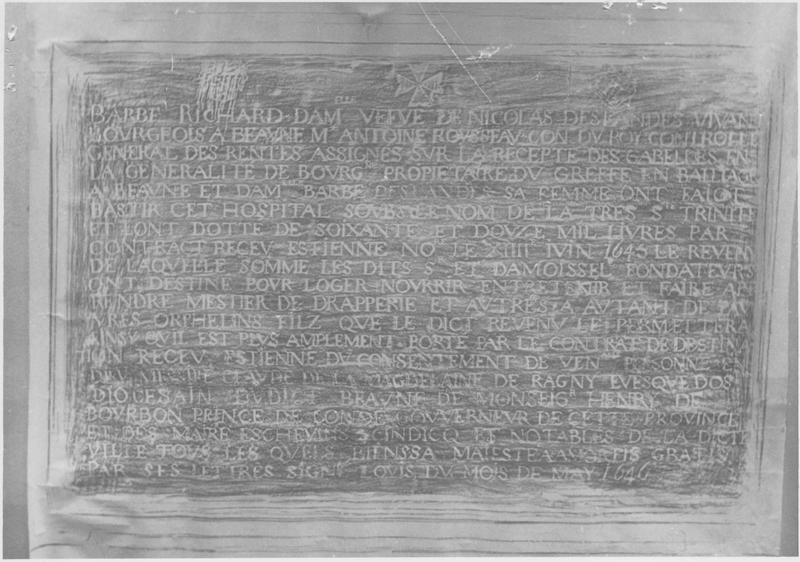 BARBE RICHARD DAM VEFVE DE NICOLAS DESLANDES VIVAN
BOVRGEOIS A BEAVNE Mᵉ ANTOINE ROVSSEAV CON DV ROY CONTROLLE
GENERAL DES RENTES ASSIGNES SVR LA RECEPTE DES GABELLES EN
LA GENERALITE DE BOVRG PROPIETAIRE DV GREFFE EN BAILIAG
A BEAVNE ET DAM BARBE DESLANDES SA FEMME ONT FAICT
BASTIR CET HOSPITAL SOVBS LE NOM DE LA TRES Sᵗᵉ TRINITE
ET LONT DOTTE DE SOIXANTE ET DOVZE MIL LIVRES PAR
CONTRACT RECEV ESTIENNE NOᵉ LE XIIII IVIN 1645 LE REVENV
DE LAQVELLE SOMME LES DITS Sʳ ET DAMOISSEL FONDATEVRS
ONT DESTINE POVR LOGER NOVRRIR ENTRETENIR ET FAIRE AP
RENDRE MESTIER DE DRAPPERIE ET AVTRES A AVTANT DE PAV
VRES ORPHELINS FILZ QVE LE DICT REVENV LE PERMETTERA
AINSY QVIL EST PLVS AMPLEMENT PORTE PAR LE CONTRAT DE DESTIN
RECEV ESTIENNE DV CONSENTEMENT DE VEN PERSONNE
CLAVDE DE LA MAGDELAINE DE RAGNY EVESQVE DOS
DIOCESAIN DVDICT BEAVNE DE MONSEIGʳ HENRY DE
BOVRBON PRINCE DE CONDE GOVVERNEVR DE CETTE PROVINCE
ET DES MAIRE ESCHEVINS SCINDICQ ET NOTABLES DE LA DICTE
VILLE TOVS LES QVELS BIENS SA MAIESTE A
PAR SES LETTRES SIGNE LOVIS DV MOIS DE MAY 1646